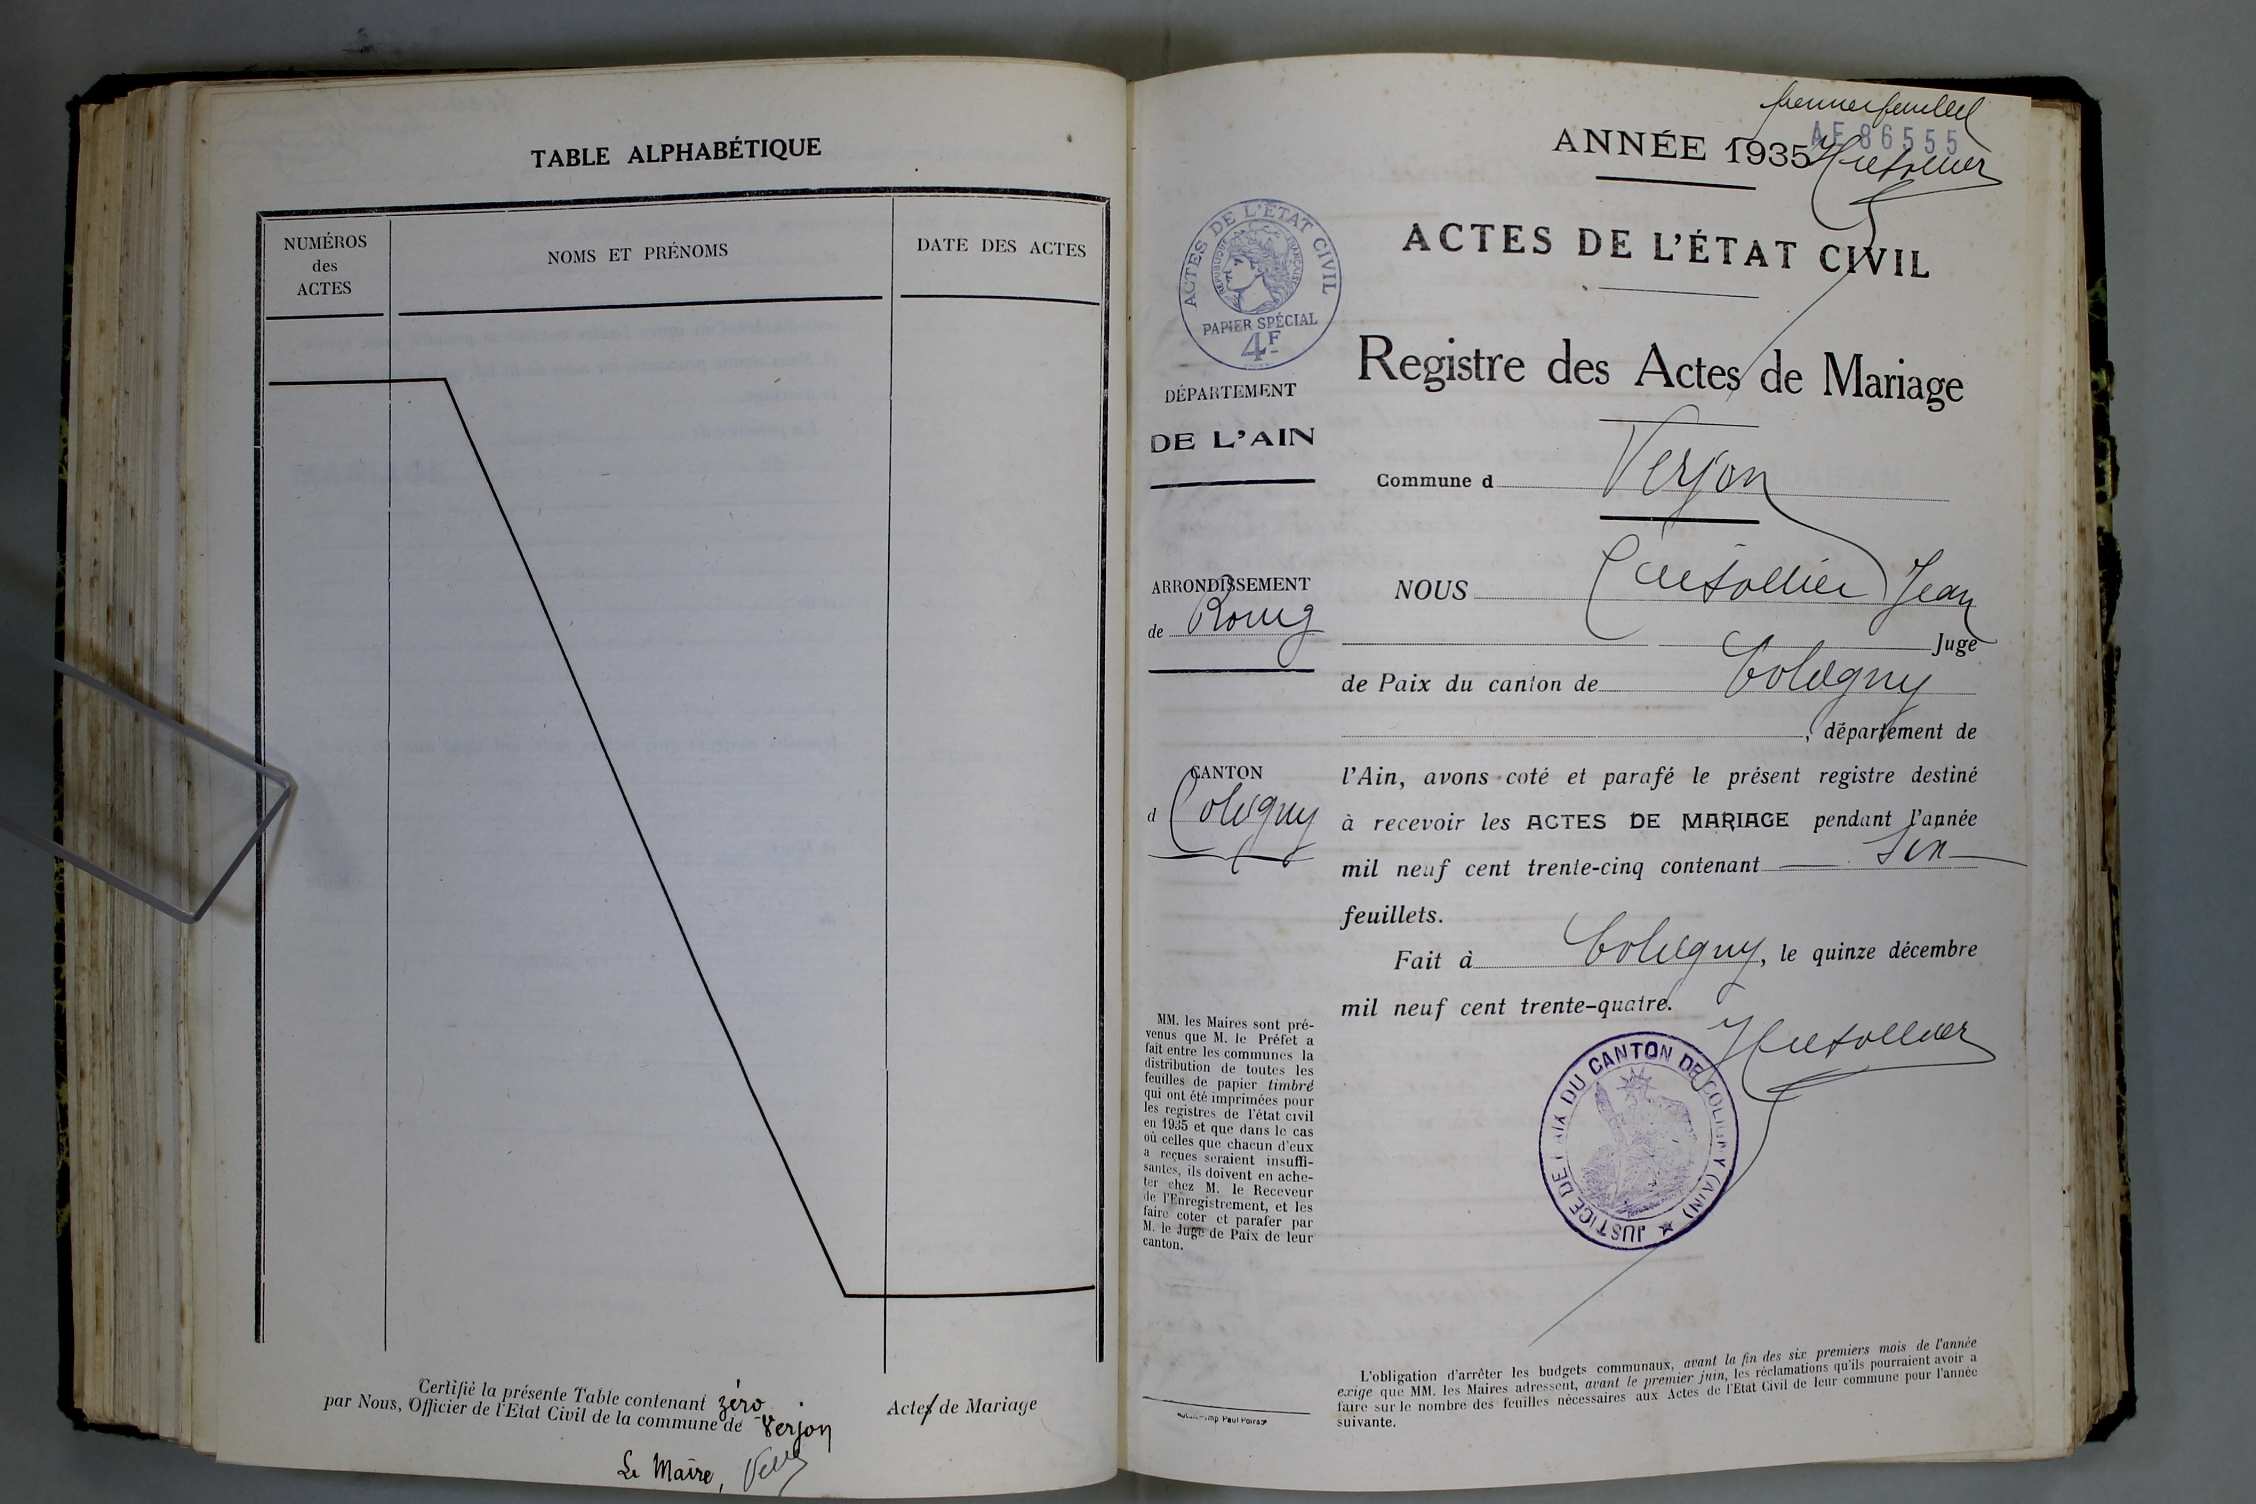 TABLE ALPHABÉTIQUE
NUMÉROS
des
ACTES
NOMS ET PRÉNOMS
DATE DES ACTES
Certifié la présente Table contenant zéro
Actes de Mariage
par Nous, Officier de l'Etat Civil de la commune de Verjon
Le Maire,
premier feuillet
AE 86555
ANNÉE 1935
ACTES DE L'ÉTAT CIVIL
ACTES DE L'ÉTAT CIVIL
RÉPUBLIQUE FRANÇAISE
PAPIER SPÉCIAL
4F
Registre des Actes de Mariage
DÉPARTEMENT
DE L'AIN
Commune d Verjon
ARRONDISSEMENT
de Bourg
NOUS Jean
Juge
de Paix du canton de Coligny
, département de
CANTON
d Coligny
l'Ain, avons coté et parafé le présent registre destiné
à recevoir les ACTES DE MARIAGE pendant l'année
mil neuf cent trente-cinq contenant six
feuillets.
Fait à Coligny, le quinze décembre
mil neuf cent trente-quatre.
JUSTICE DE PAIX DU CANTON DE COLIGNY (AIN)
MM. les Maires sont pré-
venus que M. le Préfet a
fait entre les communes la
distribution de toutes les
feuilles de papier timbré
qui ont été imprimées pour
les registres de l'état civil
en 1935 et que dans le cas
où celles que chacun d'eux
a reçues seraient insuffi-
santes, ils doivent en ache-
ter chez M. le Receveur
de l'Enregistrement, et les
faire coter et parafer par
M. le Juge de Paix de leur
canton.
Imp. Paul
L'obligation d'arrêter les budgets communaux, avant la fin des six premiers mois de l'année
exige que MM. les Maires adressent, avant le premier juin, les réclamations qu'ils pourraient avoir a
faire sur le nombre des feuilles nécessaires aux Actes de l'Etat Civil de leur commune pour l'année
suivante.